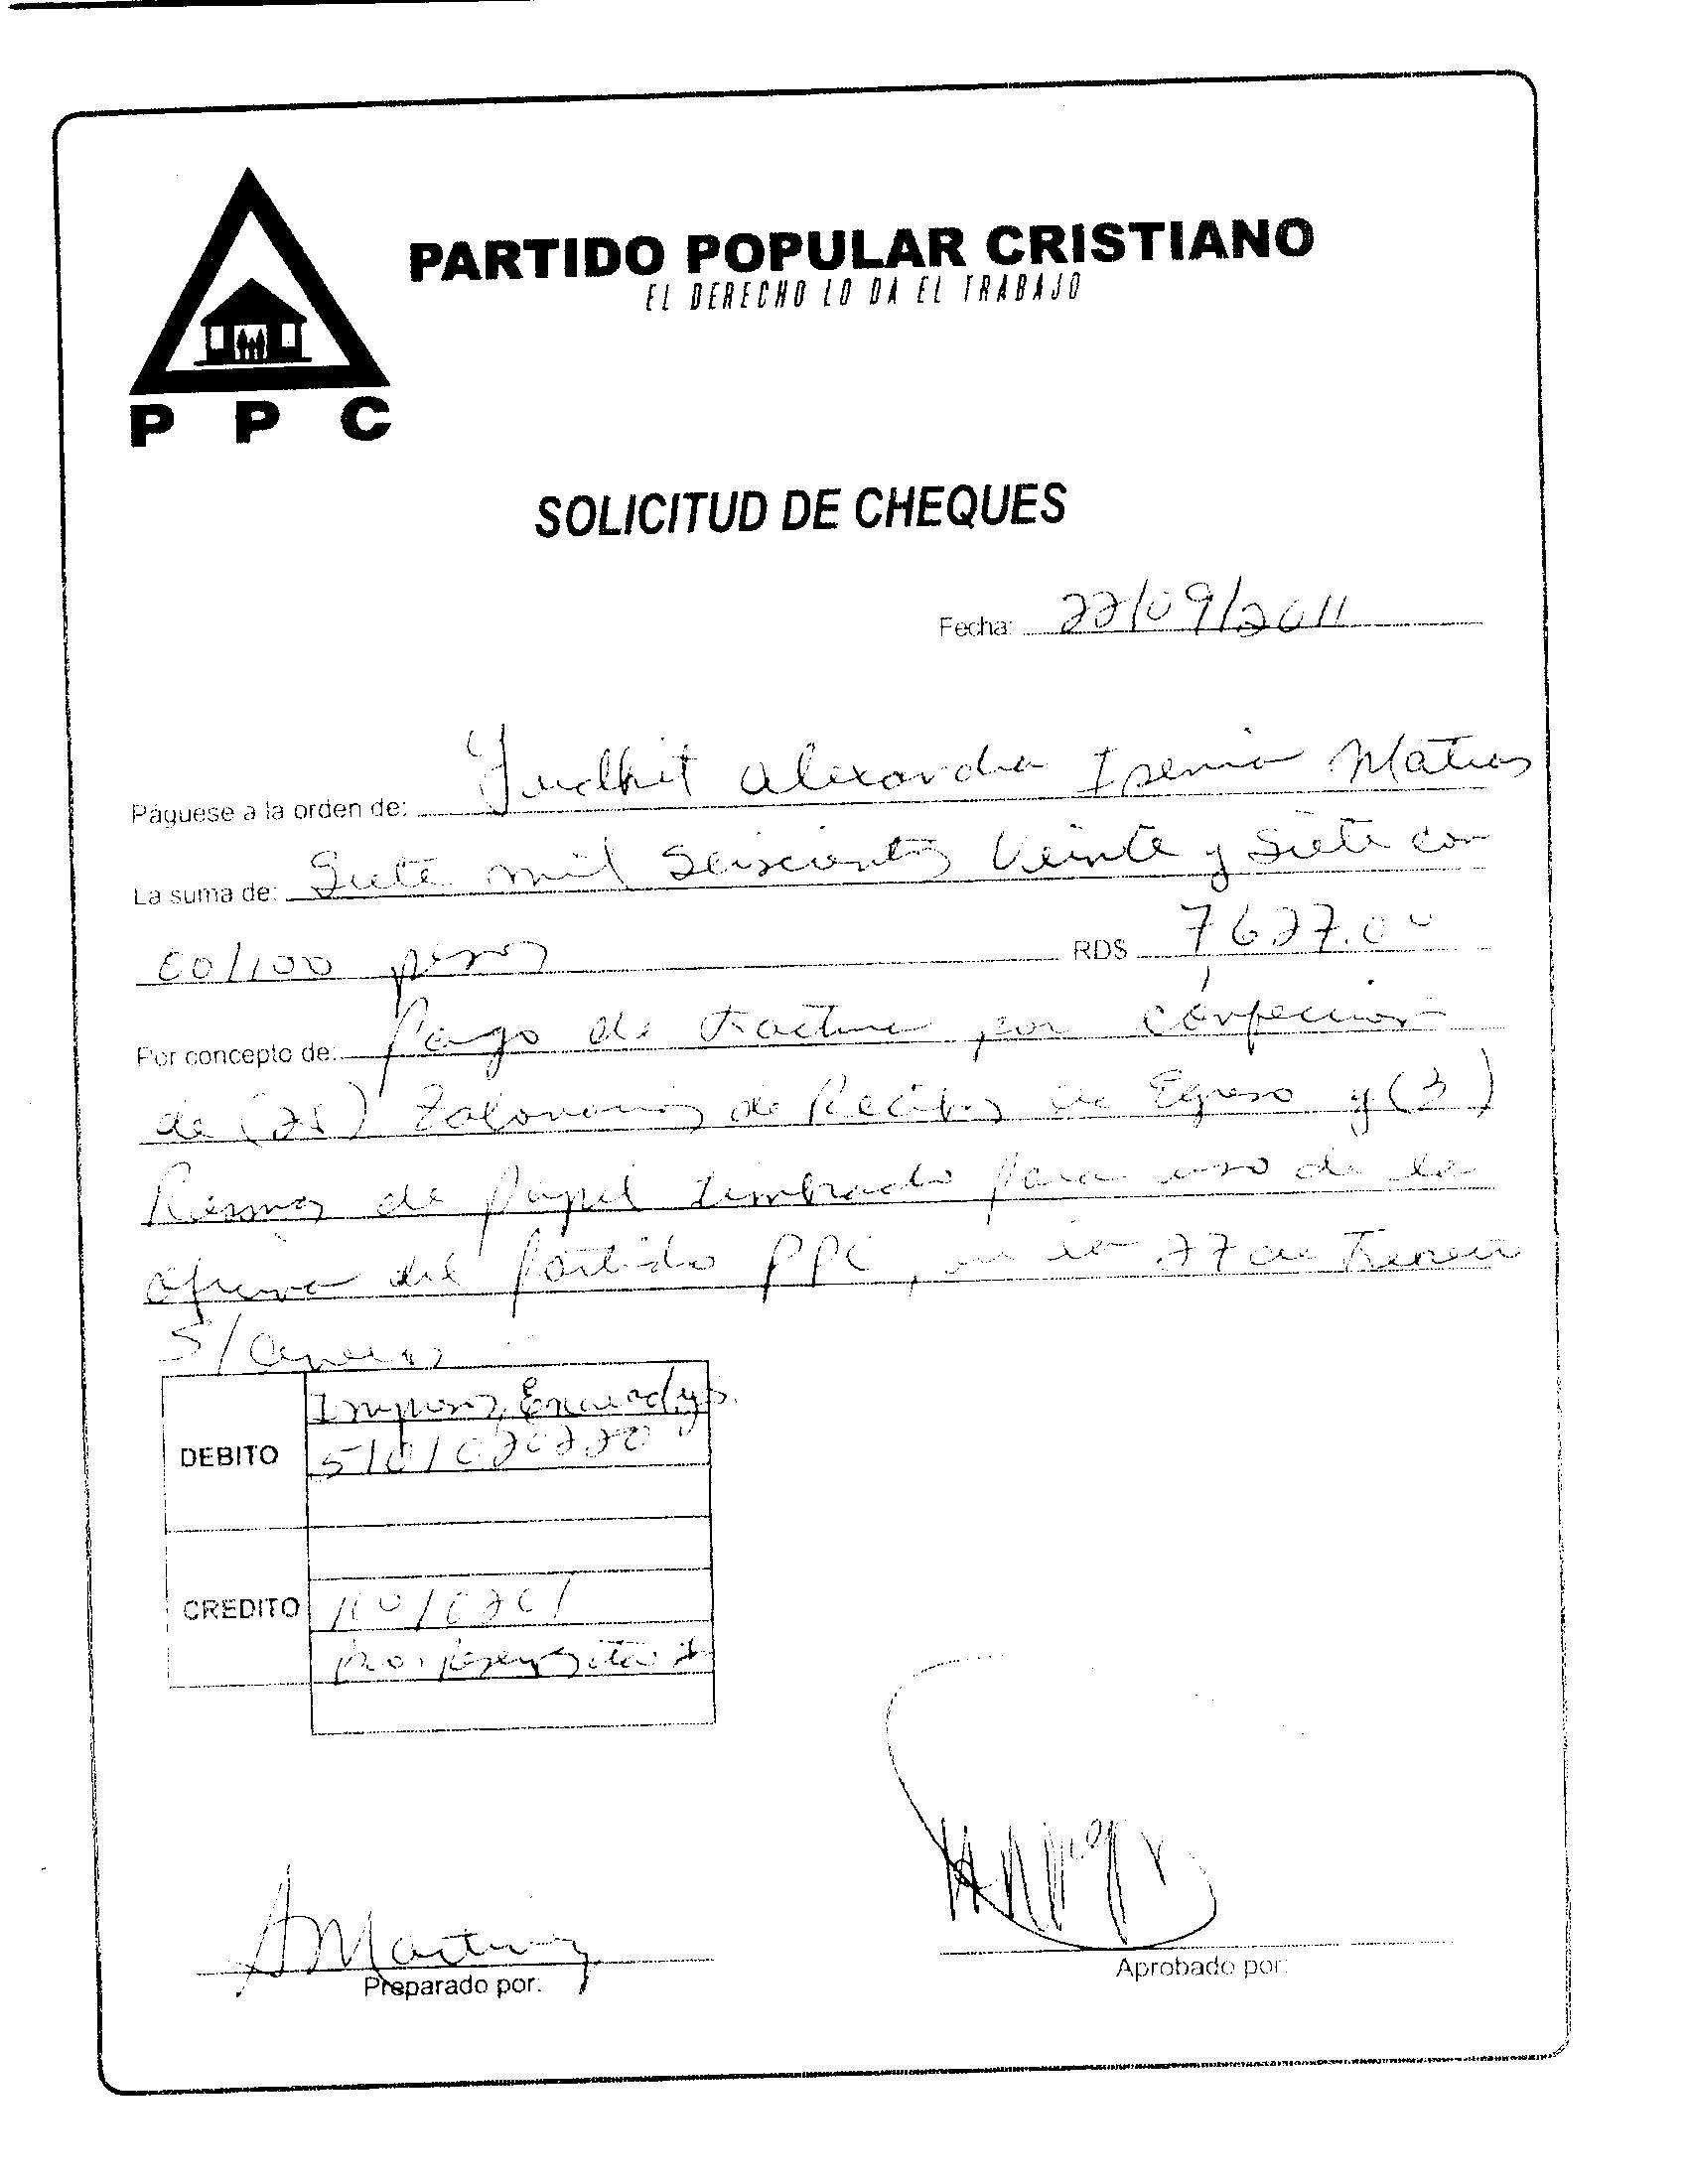 PARTIDO POPULAR CRISTIANO
EL DERECHO LO DA EL TRABAJO
P P C
SOLICITUD DE CHEQUES
Fecha: 22/09/2011
Páguese a la orden de: Yudhit Alexandra Isenia Matias
La suma de: Siete mil Seiscientos Veinte y Siete con
00/100 pesos RD$ 7627.00
Por concepto de: Pago de Factura por confeccion
de (25) Talonarios de Recibos de Egreso y (3)
Resmas de papel timbrado para uso de la
oficina del Partido PPC, en la 27 de
S/ anexos
DEBITO
CREDITO
AMartinez
Preparado por:
Aprobado por: